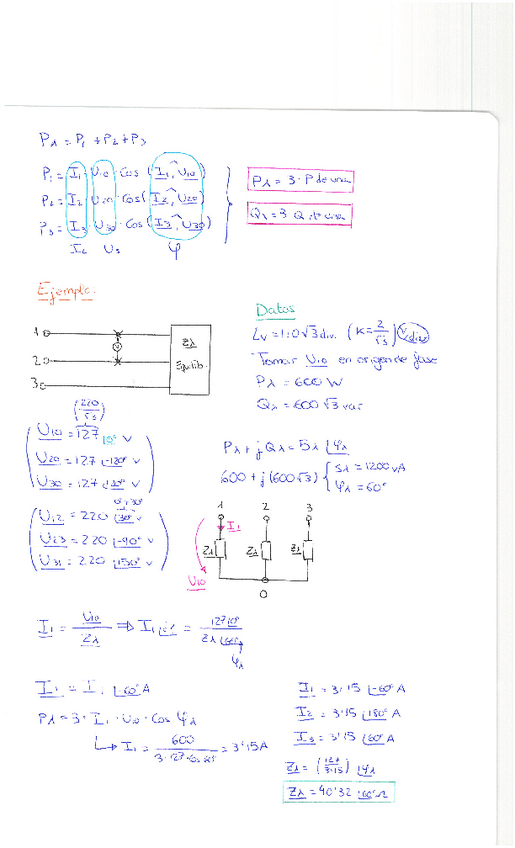 Pλ = P₁ + P₂ + P₃
P₁ = I₁ · U₁₀ · Cos (I₁, U₁₀)
P₂ = I₂ · U₂₀ · Cos (I₂, U₂₀)
P₃ = I₃ · U₃₀ · Cos (I₃, U₃₀)
Pλ = 3 · P de una
Qλ = 3 · Q de una
IL Us φ
Ejemplo:
1
2
3
Zλ
Equilib.
Datos
Lv = 110√3 div. (K = 2/√3) V/div
Tomar U₁₀ en origen de fase
Pλ = 600 W
Qλ = 600√3 var
(220/√3)
U₁₀ = 127 |0° V
U₂₀ = 127 |-120° V
U₃₀ = 127 |120° V
U₁₂ = 220 |30° V
U₂₃ = 220 |-90° V
U₃₁ = 220 |150° V
Pλ + jQλ = Sλ |φλ
600 + j(600√3) { Sλ = 1200 VA
φλ = 60°
1 2 3
I₁
Zλ Zλ Zλ
U₁₀
0
I₁ = U₁₀ / Zλ ⇒ I₁ = 127|0° / Zλ|60°
φλ
I₁ = I₁ |-60° A
Pλ = 3 · I₁ · U₁₀ · Cos φλ
↳ I₁ = 600 / = 3'15 A
I₁ = 3'15 |-60° A
I₂ = 3'15 |180° A
I₃ = 3'15 |60° A
Zλ = (127/3'15) |φλ
Zλ = 40'32 |60° Ω